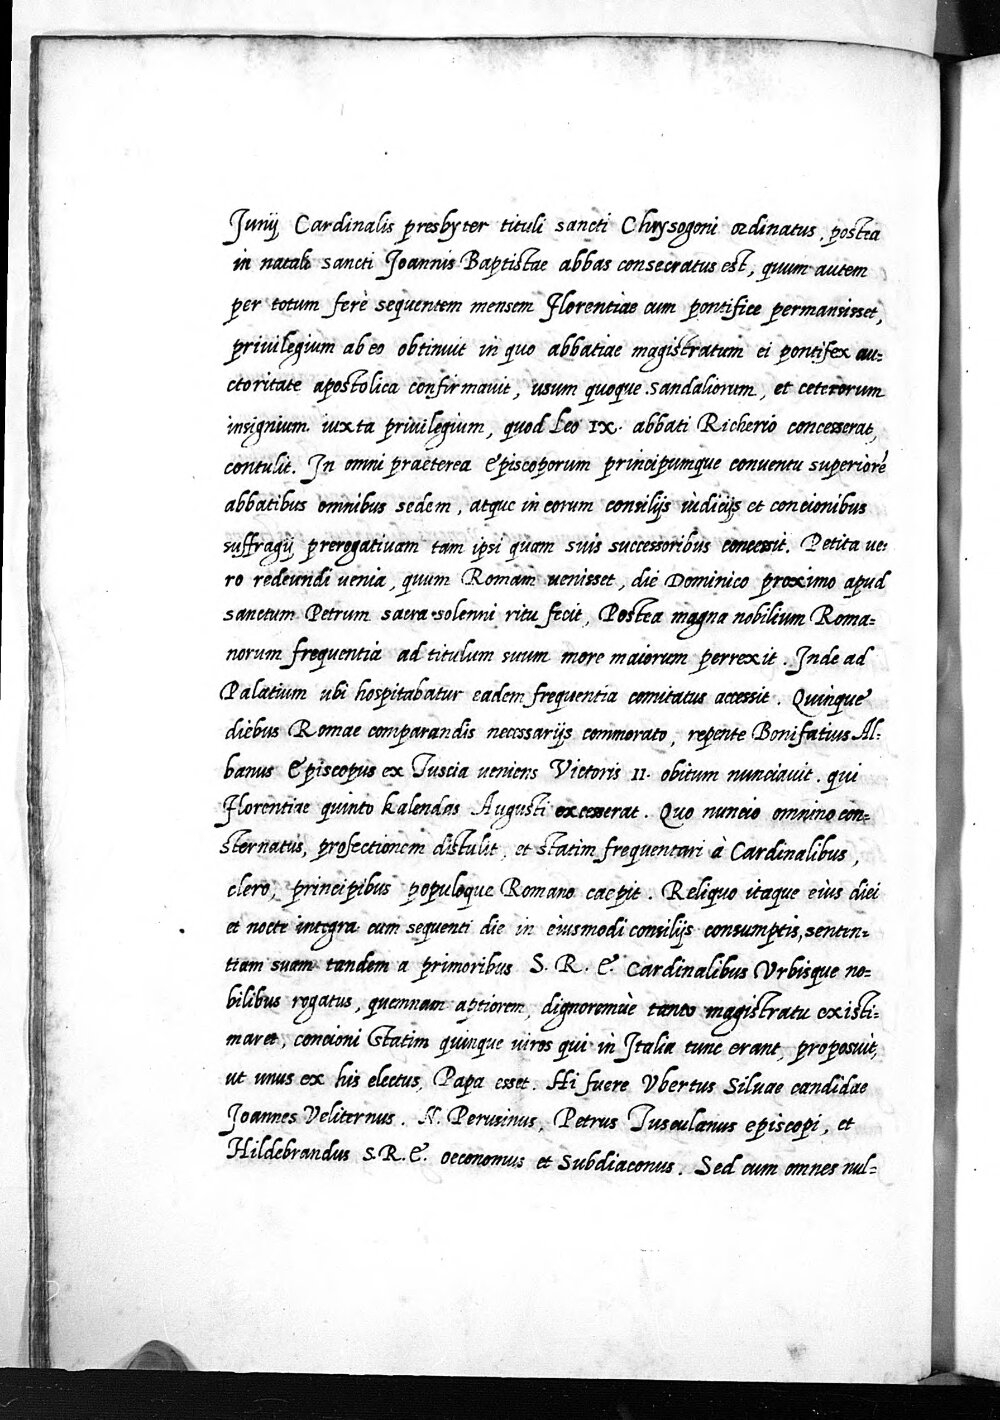 Junij Cardinalis presbyter tituli sancti Chrysogoni ordinatus, postea
in natali sancti Joannis Baptistae abbas consecratus est, quum autem
per totum ferè sequentem mensem Florentiae cum pontifice permansisset,
priuilegium ab eo obtinuit in quo abbatiae magistratum ei pontifex au=
ctoritate apostolica confirmauit, usum quoque sandaliorum, et ceterorum
insignium iuxta priuilegium, quod Leo IX. abbati Richerio concesserat,
contulit. In omni praeterea Episcoporum principumque conuentu superiorē
abbatibus omnibus sedem, atque in eorum consilijs iudicijs et concionibus
suffragij prerogatiuam tam ipsi quam suis successoribus concessit. Petita ue=
ro redeundi uenia, quum Romam uenisset, die Dominico proximo apud
sanctum Petrum sacra solenni ritu fecit, Postea magna nobilium Roma=
norum frequentia ad titulum suum more maiorum perrexit. Inde ad
Palatium ubi hospitabatur eadem frequentia comitatus accessit. Quinque
diebus Romae comparandis necessarijs commorato, repente Bonifatius Al=
banus Episcopus ex Tuscia ueniens Victoris II. obitum nunciauit. qui
Florentiae quinto kalendas Augusti excesserat. Quo nuncio omnino con=
sternatus, profectionem distulit, et statim frequentari à Cardinalibus,
clero, principibus populoque Romano caepit. Reliquo itaque eius diei
et nocte integra cum sequenti die in eiusmodi consilijs consumptis, senten=
tiam suam tandem a primoribus S. R. E. Cardinalibus Vrbisque no=
bilibus rogatus, quemnam aptiorem, dignoremùe tanto magistratu existi=
maret, concioni statim quinque uiros qui in Italia tunc erant, proposuit,
ut unus ex his electus, Papa esset. Hi fuere Vbertus Siluae candidae
Joannes Veliternus. N. Perusinus, Petrus Tusculanus episcopi, et
Hildebrandus S. R. E. oeconomus et Subdiaconus. Sed cum omnes nul=